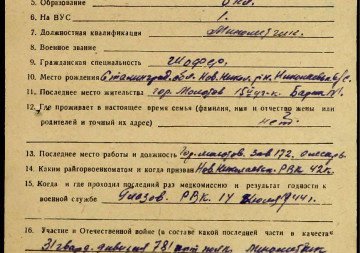 5. Образование
6. На ВУС 1.
7. Должностная квалификация Минометчик
8. Военное звание
9. Гражданская специальность Шофер.
10. Место рождения Сталинград. обл. Нов. Никол. р-н.
11. Последнее место жительства гор. Молотов 15 уч-к. Барак
12. Где проживает в настоящее время семья (фамилия, имя и отчество жены или
родителей и точный их адрес) нет.
13. Последнее место работы и должность Гор. Молотов. Зав 172.
14. Каким райгорвоенкоматом и когда призван Нов Николаевск. РВК 42г.
15. Когда и где проходил последний раз медкомиссию и результат годности к
военной службе РВК. 14 44 г.
16. Участие в Отечественной войне (в составе какой последней части в качестве
31 гвард. дивизия 78 полк Минометчик